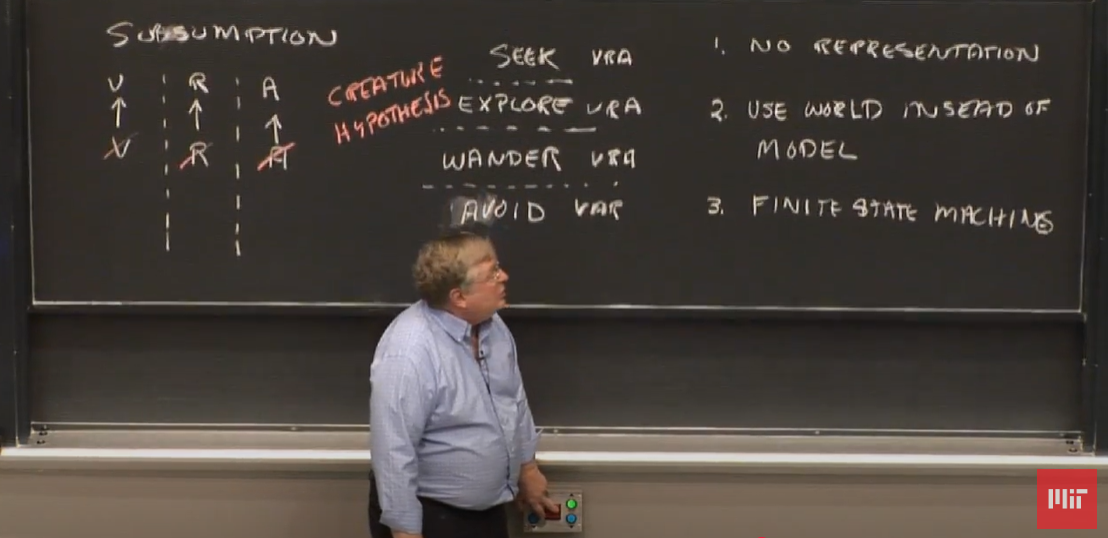 SUBSUMPTION
V R A
V R A
CREATURE
HYPOTHESIS
SEEK VRA
EXPLORE VRA
WANDER VRA
AVOID VAR
1. NO REPRESENTATION
2. USE WORLD INSEAD OF
MODEL
3. FINITE STATE MACHINES
MIT